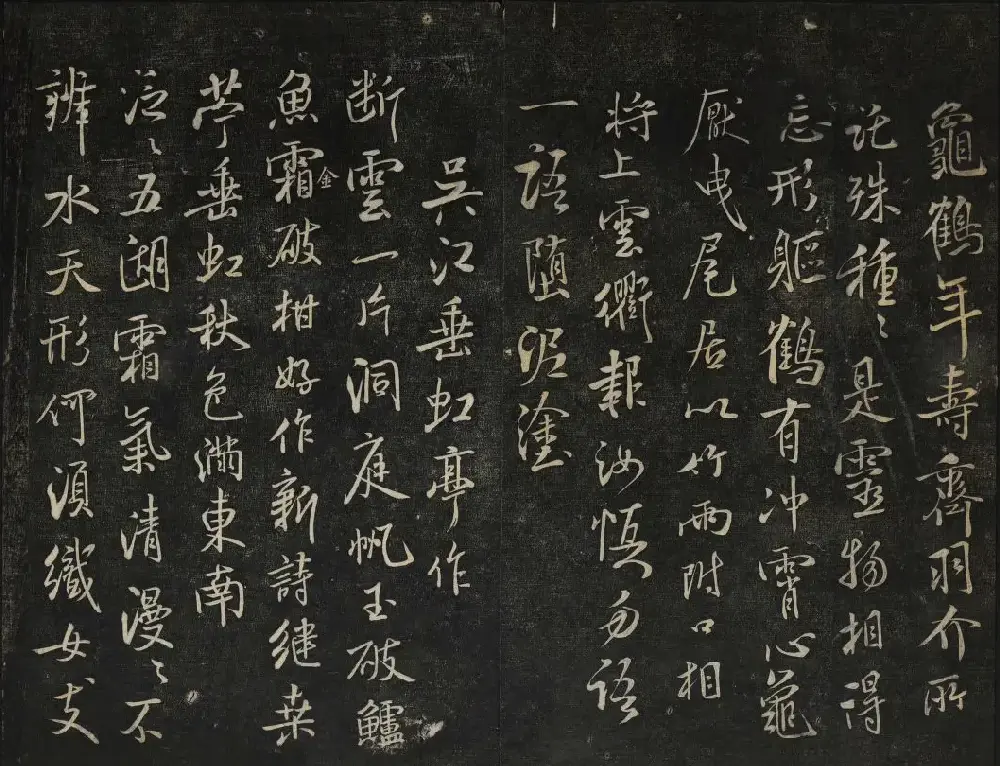 龜鶴年壽齊羽介所
託殊種〻是靈物相得
忘形軀鶴有冲霄心龜
厭曳尾居以竹兩附口相
將上雲衢報汝慎勿語
一語墮泥塗
吳江垂虹亭作
断雲一片洞庭帆玉破鱸
魚霜金破柑好作新詩繼桑
苧垂虹秋色滿東南
泛〻五湖霜氣清漫〻不
辨水天形何須織女支